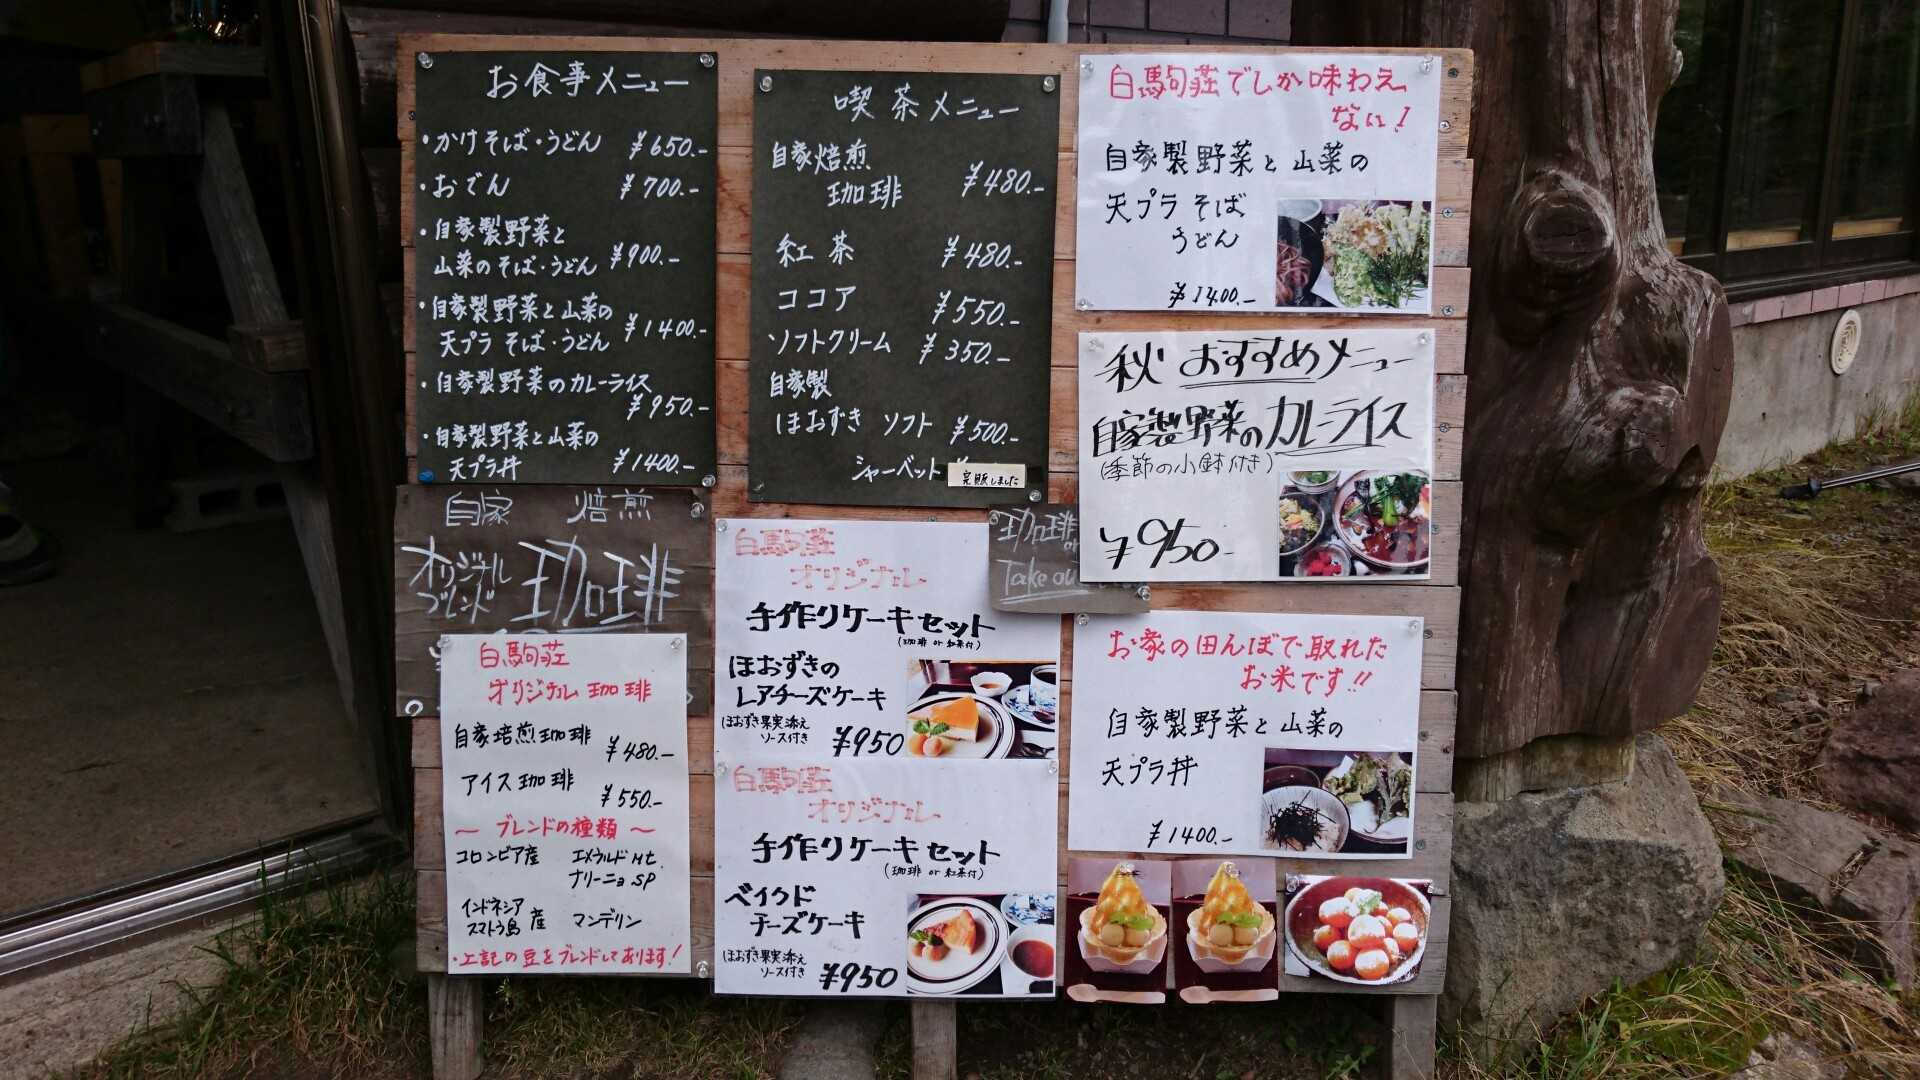 お食事メニュー
・かけそば・うどん ¥650.-
・おでん ¥700.-
・自家製野菜と
山菜のそば・うどん ¥900.-
・自家製野菜と山菜の
天プラ そば・うどん ¥1400.-
・自家製野菜のカレーライス
¥950.-
・自家製野菜と山菜の
天プラ丼 ¥1400.-
喫茶メニュー
自家焙煎
珈琲 ¥480.-
紅茶 ¥480.-
ココア ¥550.-
ソフトクリーム ¥350.-
自家製
ほおずき ソフト ¥500.-
シャーベット
完販しました
白駒荘でしか味わえ
ない!
自家製野菜と山菜の
天プラ そば
うどん
¥1400.-
秋 おすすめメニュー
自家製野菜のカレーライス
(季節の小鉢付き)
¥950-
自家 焙煎
オリジナル
ブレンド 珈琲
白駒荘
オリジナル 珈琲
自家焙煎珈琲
¥480.-
アイス珈琲
¥550.-
〜 ブレンドの種類 〜
コロンビア産 エメラルドMt.
ナリーニョSP
インドネシア
スマトラ島 産 マンデリン
・上記の豆をブレンドしてあります!
白駒荘
オリジナル
手作りケーキセット
(珈琲 or 紅茶付)
ほおずきの
レアチーズケーキ
ほおずき果実添え
ソース付き ¥950
珈琲
Take ou
白駒荘
オリジナル
手作りケーキセット
(珈琲 or 紅茶付)
ベイクド
チーズケーキ
ほおずき果実添え
ソース付き ¥950
お家の田んぼで取れた
お米です!!
自家製野菜と山菜の
天プラ丼
¥1400.-